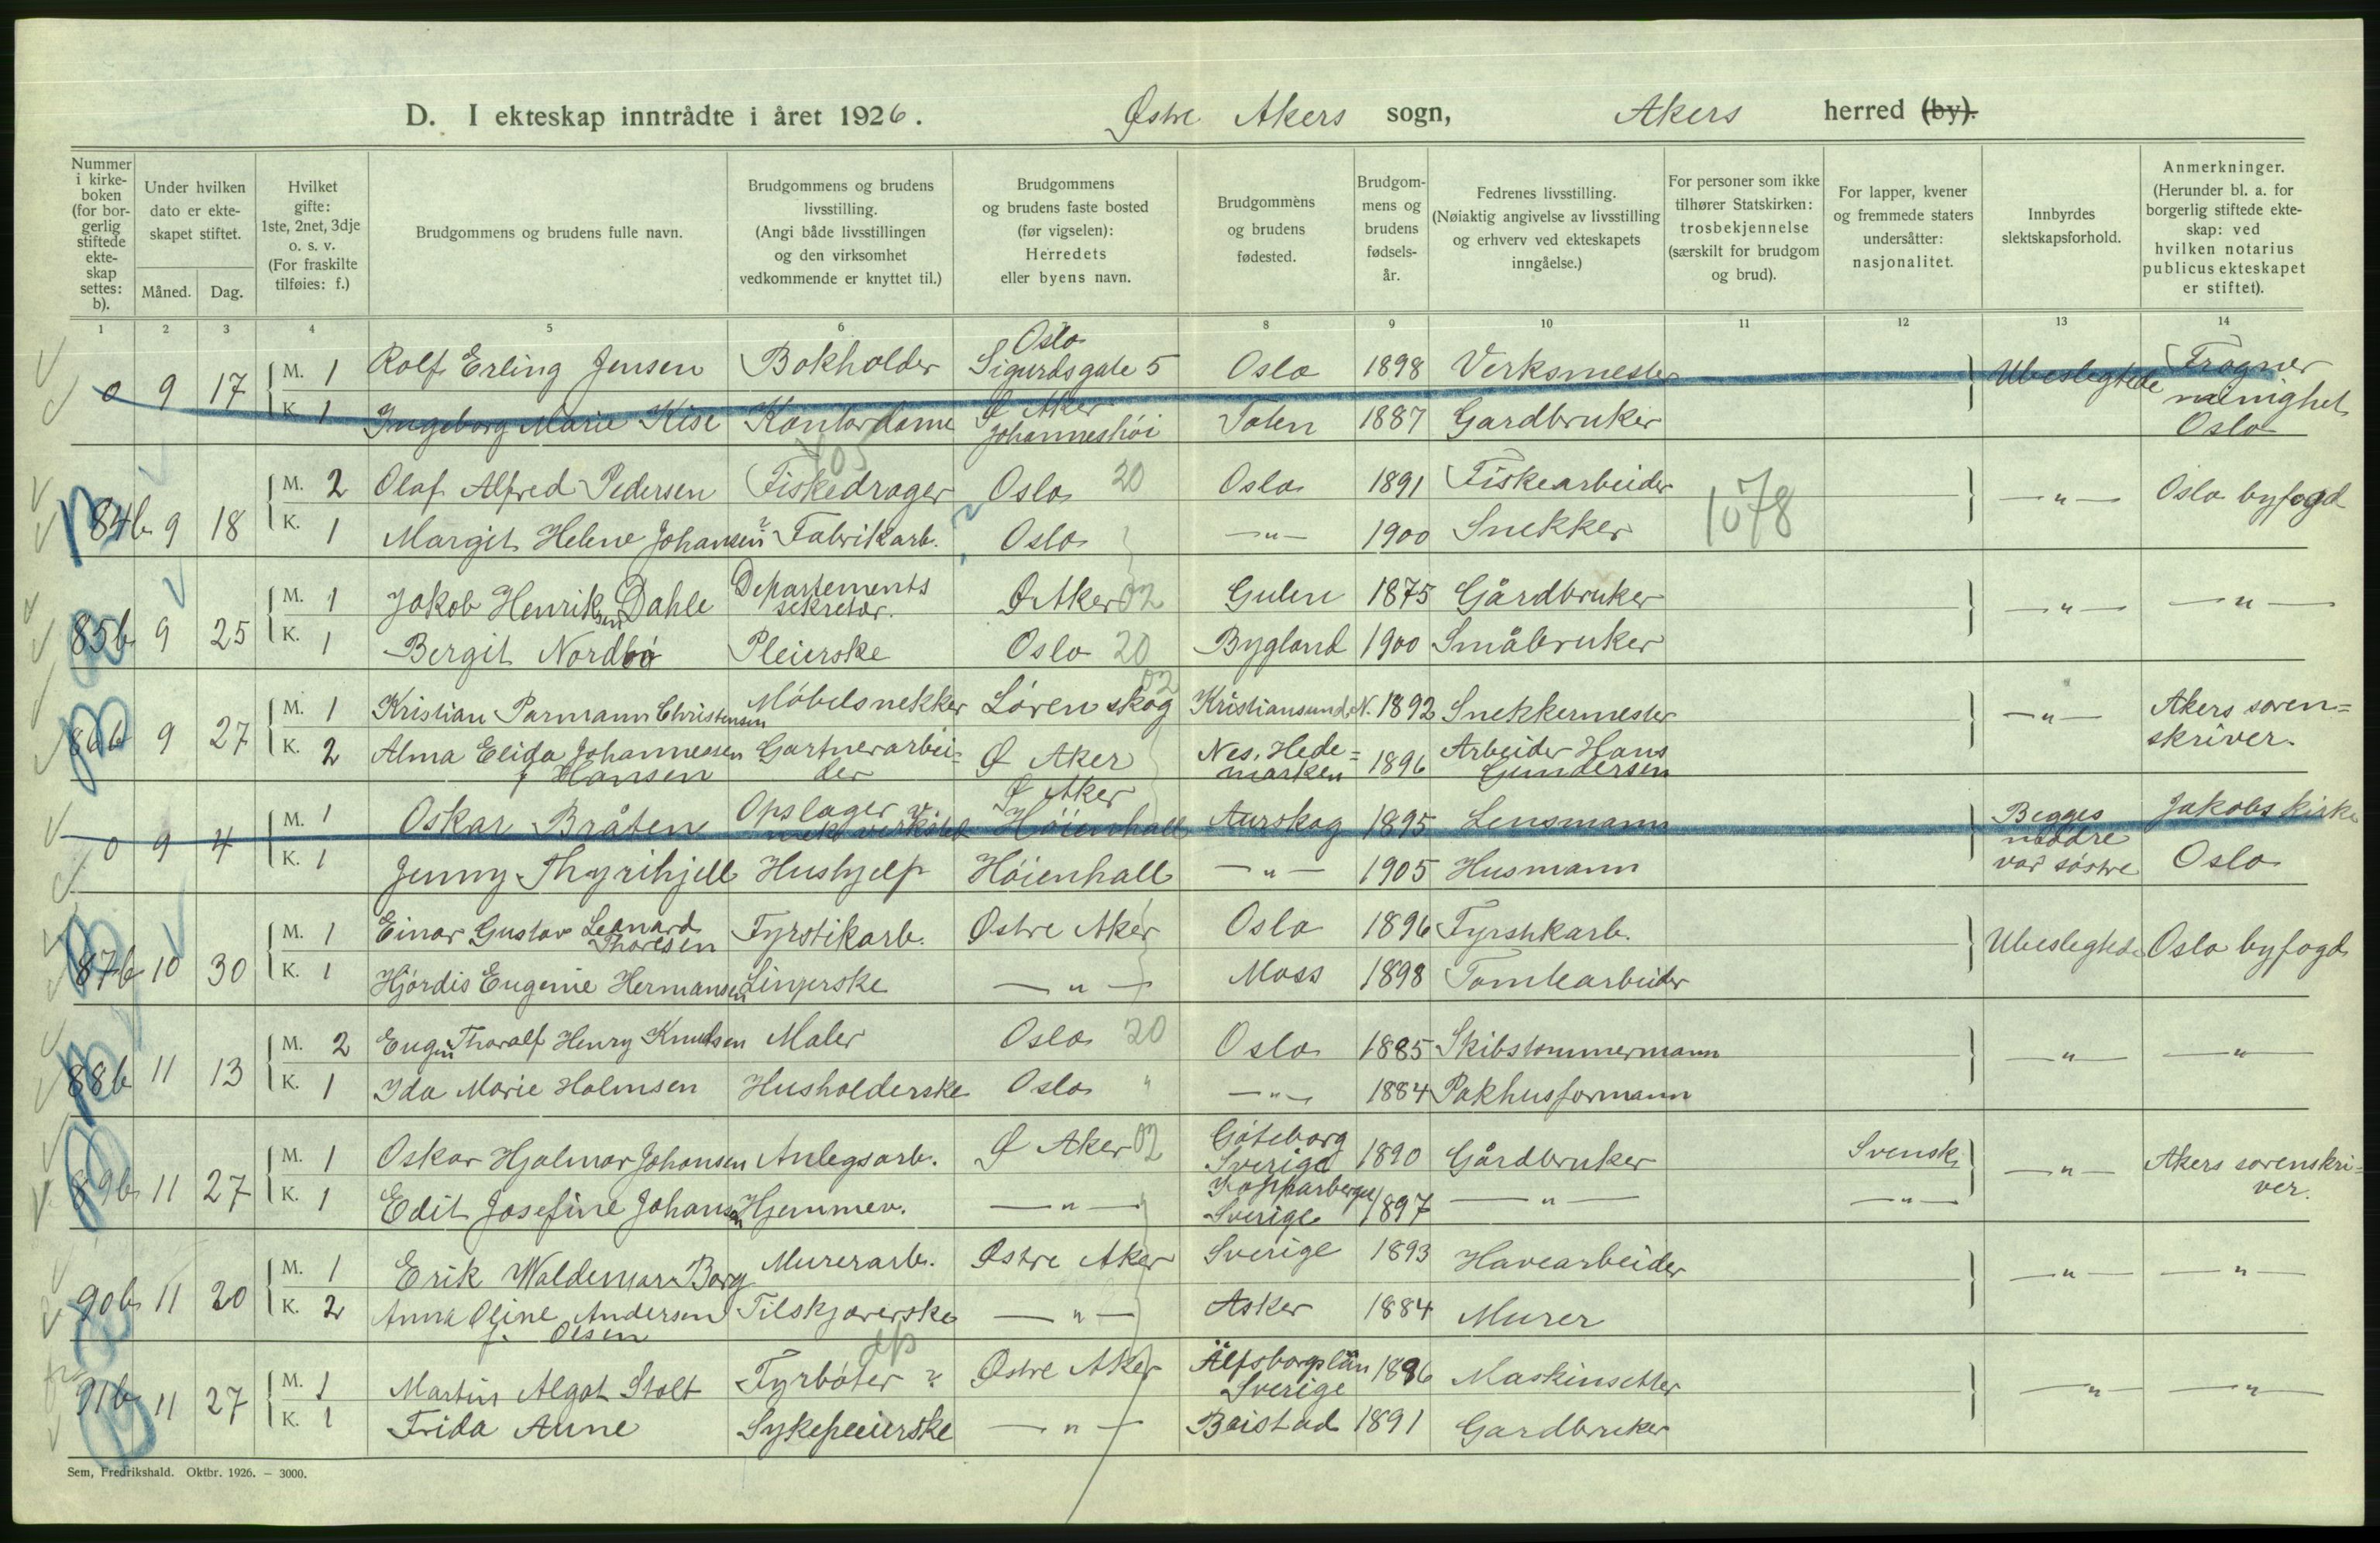 D. I ekteskap inntrådte i året 1926. Østre Akers sogn, Akers herred (by).
Nummer i kirkeboken (for borgerlig stiftede ekteskap settes: b).
Under hvilken dato er ekteskapet stiftet.
Måned. Dag.
Hvilket gifte: 1ste, 2net, 3dje o. s. v. (For fraskilte tilføies: f.)
Brudgommens og brudens fulle navn.
Brudgommens og brudens livsstilling. (Angi både livsstillingen og den virksomhet vedkommende er knyttet til.)
Brudgommens og brudens faste bosted (før vigselen): Herredets eller byens navn.
Brudgommens og brudens fødested.
Brudgommens og brudens fødselsår.
Fedrenes livsstilling. (Nøiaktig angivelse av livsstilling og erhverv ved ekteskapets inngåelse.)
For personer som ikke tilhører Statskirken: trosbekjennelse (særskilt for brudgom og brud).
For lapper, kvener og fremmede staters undersåtter: nasjonalitet.
Innbyrdes slektskapsforhold.
Anmerkninger. (Herunder bl. a. for borgerlig stiftede ekteskap: ved hvilken notarius publicus ekteskapet er stiftet).
1 2 3 4 5 6 8 9 10 11 12 13 14
0 9 17 M. 1 Rolf Erling Jensen Bokholder Oslo Sigurdsgate 5 Oslo 1898 Verksmester Ubeslegtede Frogner menighet Oslo
K. 1 Ingeborg Marie Kise Kontordame Ø Aker Johanneshöi Toten 1887 Gardbruker
84b 9 18 M. 2 Olaf Alfred Pedersen Fiskedrager Oslo 20 Oslo 1891 Fiskearbeider 1078 —"— Oslo byfogd
K. 1 Margit Helene Johansen Fabrikarb. Oslo —"— 1900 Snekker
85b 9 25 M. 1 Jakob Henriksen Dahle Departements sekretær. Ø Aker 02 Gulen 1875 Gårdbruker —"— —"—
K. 1 Bergit Nordbö Pleierske Oslo 20 Bygland 1900 Småbruker
86b 9 27 M. 1 Kristian Parmann Christensen Möbelsnekker Lörenskog 02 Kristiansund N. 1892 Snekkermester —"— Akers soren=skriver.
K. 2 Alma Elida Johannessen f Hansen Gartnerarbei=der Ø Aker Nes, Hede=marken 1896 Arbeider Hans Gundersen
0 9 4 M. 1 Oskar Bråten Opslager v. mek verksted Ø Aker Höienhall Aurskog 1895 Lensmann Begges mödre var söstre Jakobs kirke Oslo
K. 1 Jenny Thyrihjell Hushjelp Höienhall —"— 1905 Husmann
87b 10 30 M. 1 Einar Gustav Leonard Thoresen Fyrstikarb. Østre Aker Oslo 1896 Fyrstikarb. Ubeslegtede Oslo byfogd
K. 1 Hjördis Eugenie Hermansen Linjerske —"— Moss 1898 Tomtearbeider
88b 11 13 M. 2 Eugen Thoralf Henry Knudsen Maler Oslo 20 Oslo 1885 Skibstommermann —"— —"—
K. 1 Ida Marie Holmsen Husholderske Oslo " —"— 1884 Pakhusformann
89b 11 27 M. 1 Oskar Hjalmar Johansen Anlegsarb. Ø Aker 02 Göteborg Sverige 1890 Gårdbruker Svensk —"— Akers sorenskri=ver.
K. 1 Edit Josefine Johansen Hjemmev. —"— Kopparberget Sverige 1897 —"— —"—
90b 11 20 M. 1 Erik Waldemar Borg Murerarb. Østre Aker Sverige 1893 Havearbeider —"— —"—
K. 2 Anna Oline Andersen f. Olsen Tilskjærerske —"— Asker 1884 Murer
91b 11 27 M. 1 Martin Algot Stolt Fyrböter Østre Aker Älfsborgslän Sverige 1896 Maskinsetter —"— —"—
K. 1 Frida Aune Sykepleierske —"— Beistad 1891 Gardbruker
Sem, Fredrikshald. Oktbr. 1926. – 3000.